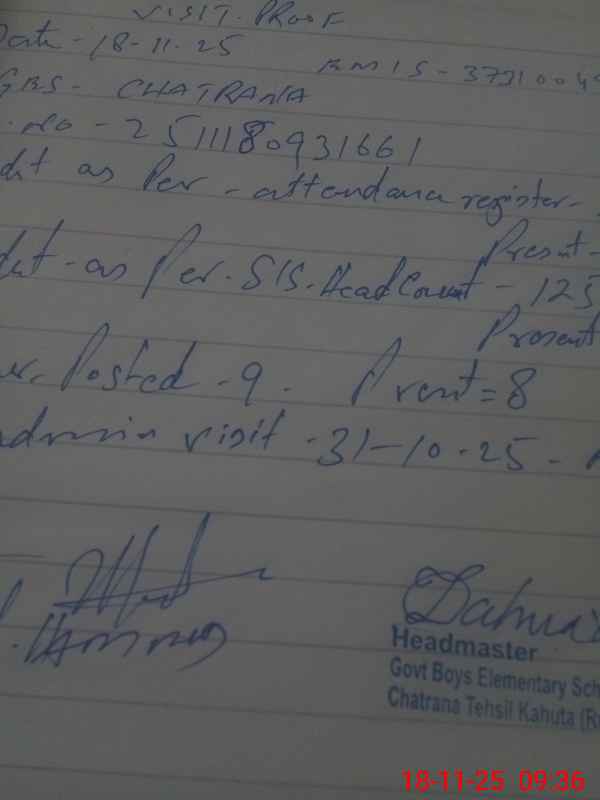 VISIT. PROOF
Date - 18-11-25
EMIS - 3731004
GBS - CHATRANA
.no - 2511180931661
as Per - attendana register -
Present -
as Per. SIS. Head Count - 125
Present
Posted - 9. Prent = 8
visit - 31-10-25 -
Headmaster
Govt Boys Elementary Sch
Chatrana Tehsil Kahuta (R
18-11-25 09:36